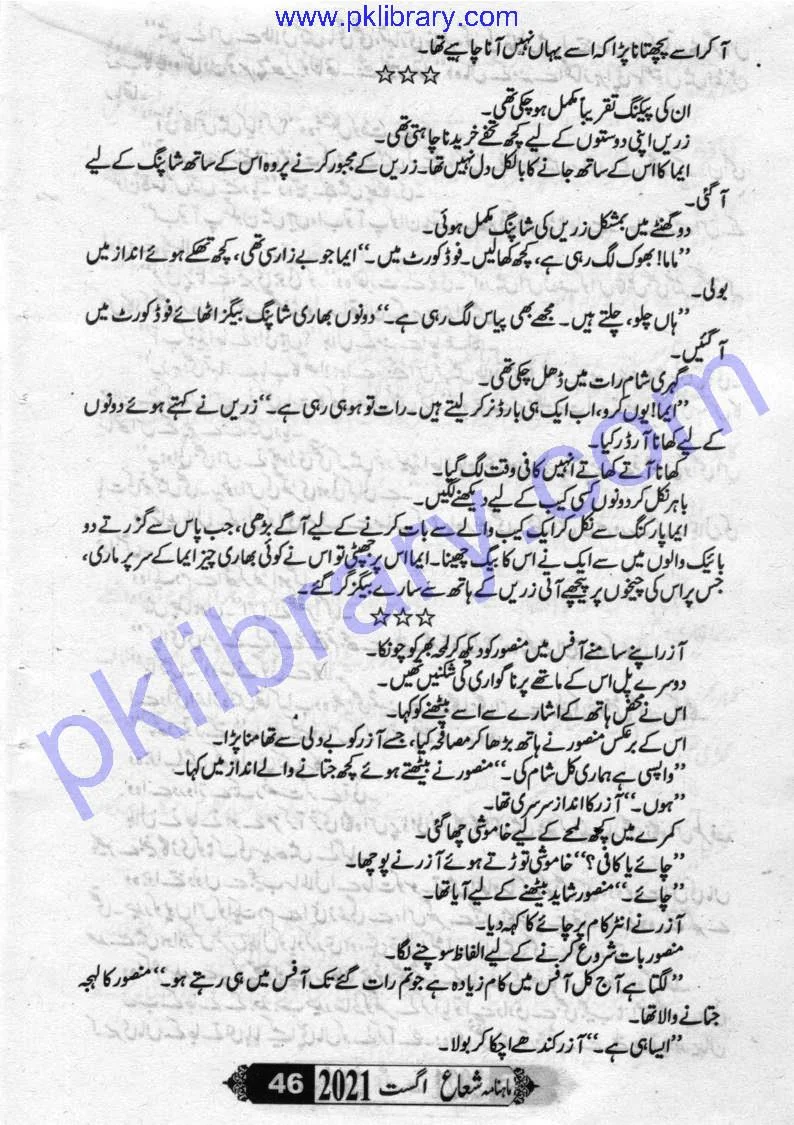 www.pklibrary.com
آ کر اسے پچھتانا پڑا کہ اسے یہاں نہیں آنا چاہیے تھا۔
☆☆☆
ان کی پیکنگ تقریباً مکمل ہو چکی تھی۔
زریں اپنی دوستوں کے لیے کچھ تحفے خریدنا چاہتی تھی۔
ایما کا اس کے ساتھ جانے کا بالکل دل نہیں تھا۔ زریں کے مجبور کرنے پر وہ اس کے ساتھ شاپنگ کے لیے
آ گئی۔
دو گھنٹے میں بمشکل زریں کی شاپنگ مکمل ہوئی۔
”ماما! بھوک لگ رہی ہے، کچھ کھا لیں۔ فوڈ کورٹ میں۔“ ایما جو بے زار سی تھی، کچھ تھکے ہوئے انداز میں
بولی۔
”ہاں چلو، چلتے ہیں۔ مجھے بھی پیاس لگ رہی ہے۔“ دونوں بھاری شاپنگ بیگز اٹھائے فوڈ کورٹ میں
آ گئیں۔
گہری شام رات میں ڈھل چکی تھی۔
”ایما! یوں کرو، اب ایک ہی بار ڈنر کر لیتے ہیں۔ رات تو ہو ہی رہی ہے۔“ زریں نے کہتے ہوئے دونوں
کے لیے کھانا آرڈر کیا۔
کھانا آتے کھاتے انہیں کافی وقت لگ گیا۔
باہر نکل کر دونوں کسی کیب کے لیے دیکھنے لگیں۔
ایما پارکنگ سے نکل کر ایک کیب والے سے بات کرنے کے لیے آگے بڑھی، جب پاس سے گزرتے دو
بائیک والوں میں سے ایک نے اس کا بیگ چھینا۔ ایما اس پر جھپٹی تو اس نے کوئی بھاری چیز ایما کے سر پر ماری،
جس پر اس کی چیخوں پر پیچھے آتی زریں کے ہاتھ سے سارے بیگز گر گئے۔
☆☆☆
آزر اپنے سامنے آفس میں منصور کو دیکھ کر لمحہ بھر کو چونکا۔
دوسرے پل اس کے ماتھے پر ناگواری کی شکنیں تھیں۔
اس نے محض ہاتھ کے اشارے سے اسے بیٹھنے کو کہا۔
اس کے برعکس منصور نے ہاتھ بڑھا کر مصافحہ کیا، جسے آزر کو بے دلی سے تھامنا پڑا۔
”واپسی ہے ہماری کل شام کی۔“ منصور نے بیٹھتے ہوئے کچھ جتانے والے انداز میں کہا۔
”ہوں۔“ آزر کا انداز سرسری تھا۔
کمرے میں کچھ لمحے کے لیے خاموشی چھا گئی۔
”چائے یا کافی؟“ خاموشی توڑتے ہوئے آزر نے پوچھا۔
”چائے۔“ منصور شاید بیٹھنے کے لیے آیا تھا۔
آزر نے انٹرکام پر چائے کا کہہ دیا۔
منصور بات شروع کرنے کے لیے الفاظ سوچنے لگا۔
”لگتا ہے آج کل آفس میں کام زیادہ ہے جو تم رات گئے تک آفس میں ہی رہتے ہو۔“ منصور کا لہجہ
جتانے والا تھا۔
”ایسا ہی ہے۔“ آزر کندھے اچکا کر بولا۔
ماہنامہ شعاع اگست 2021 46
pklibrary.com